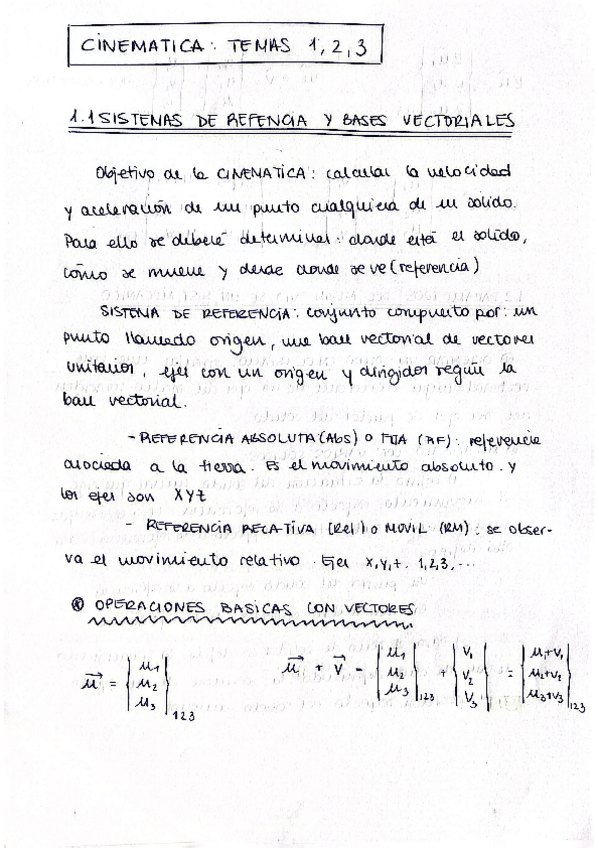 CINEMATICA: TEMAS 1, 2, 3
1.1 SISTEMAS DE REFENCIA Y BASES VECTORIALES
Objetivo de la CINEMATICA: calcular la velocidad
y aceleración de un punto cualquiera de un solido.
Para ello se deberá determinar: donde está el solido,
cómo se mueve y desde donde se ve (referencia)
SISTEMA DE REFERENCIA: conjunto compuesto por: un
punto llamado origen, una base vectorial de vectores
unitarios, ejes con un origen y dirigidos según la
base vectorial.
- REFERENCIA ABSOLUTA (Abs) O FIJA (RF): referencia
asociada a la tierra. Es el movimiento absoluto. y
los ejes son XYZ
- REFERENCIA RELATIVA (Rel) o MOVIL (RM): se obser-
va el movimiento relativo. Ejes x,y,z. 1,2,3,...
* OPERACIONES BASICAS CON VECTORES
u⃗ = {u1 u2 u3}123 u⃗ + v⃗ = {u1 u2 u3}123 + {v1 v2 v3} = {u1+v1 u2+v2 u3+v3}123